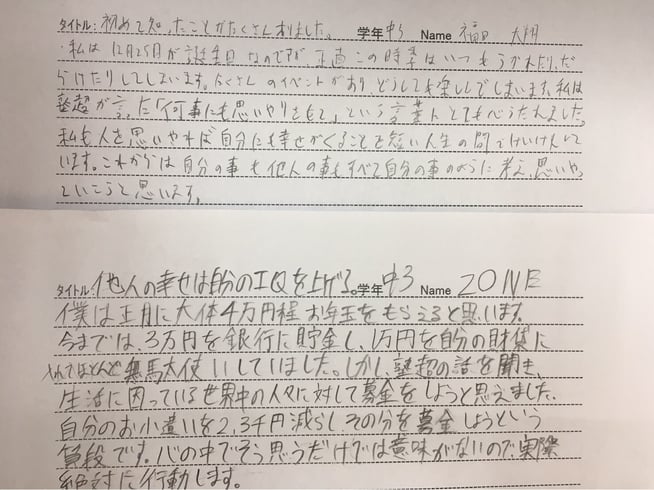 タイトル:初めて知ったことがたくさんありました。 学年 中3 Name 福田 大翔
・私は12月25日が誕生日なのですが正直この時季はいつもうかれたり、だ
らけたりしてしまいます。たくさんのイベントがありどうしても楽しんでしまいます。私は
塾超が言った「何事にも思いやりをもて」という言葉にとても心うたれました。
私も人を思いやれば自分にも幸せがくることを短い人生の間でけいけんして
います。これからは自分の事も他人の事もすべて自分の事のように考え、思いやっ
ていこうと思います。
タイトル 他人の幸せは自分のIQを上げる。 学年 中3 Name ZONE
僕は正月に大体4万円程お年玉をもらえると思います。
今までは、3万円を銀行に貯金し、1万円を自分の財布に
入れてほとんど無駄使いしていました。しかし、塾超の話を聞き、
生活に困っている世界中の人々に対して募金をしようと思えました。
自分のお小遣いを2,3千円減らしその分を募金しようという
算段です。心の中でそう思うだけでは意味がないので、実際
絶対に行動します。